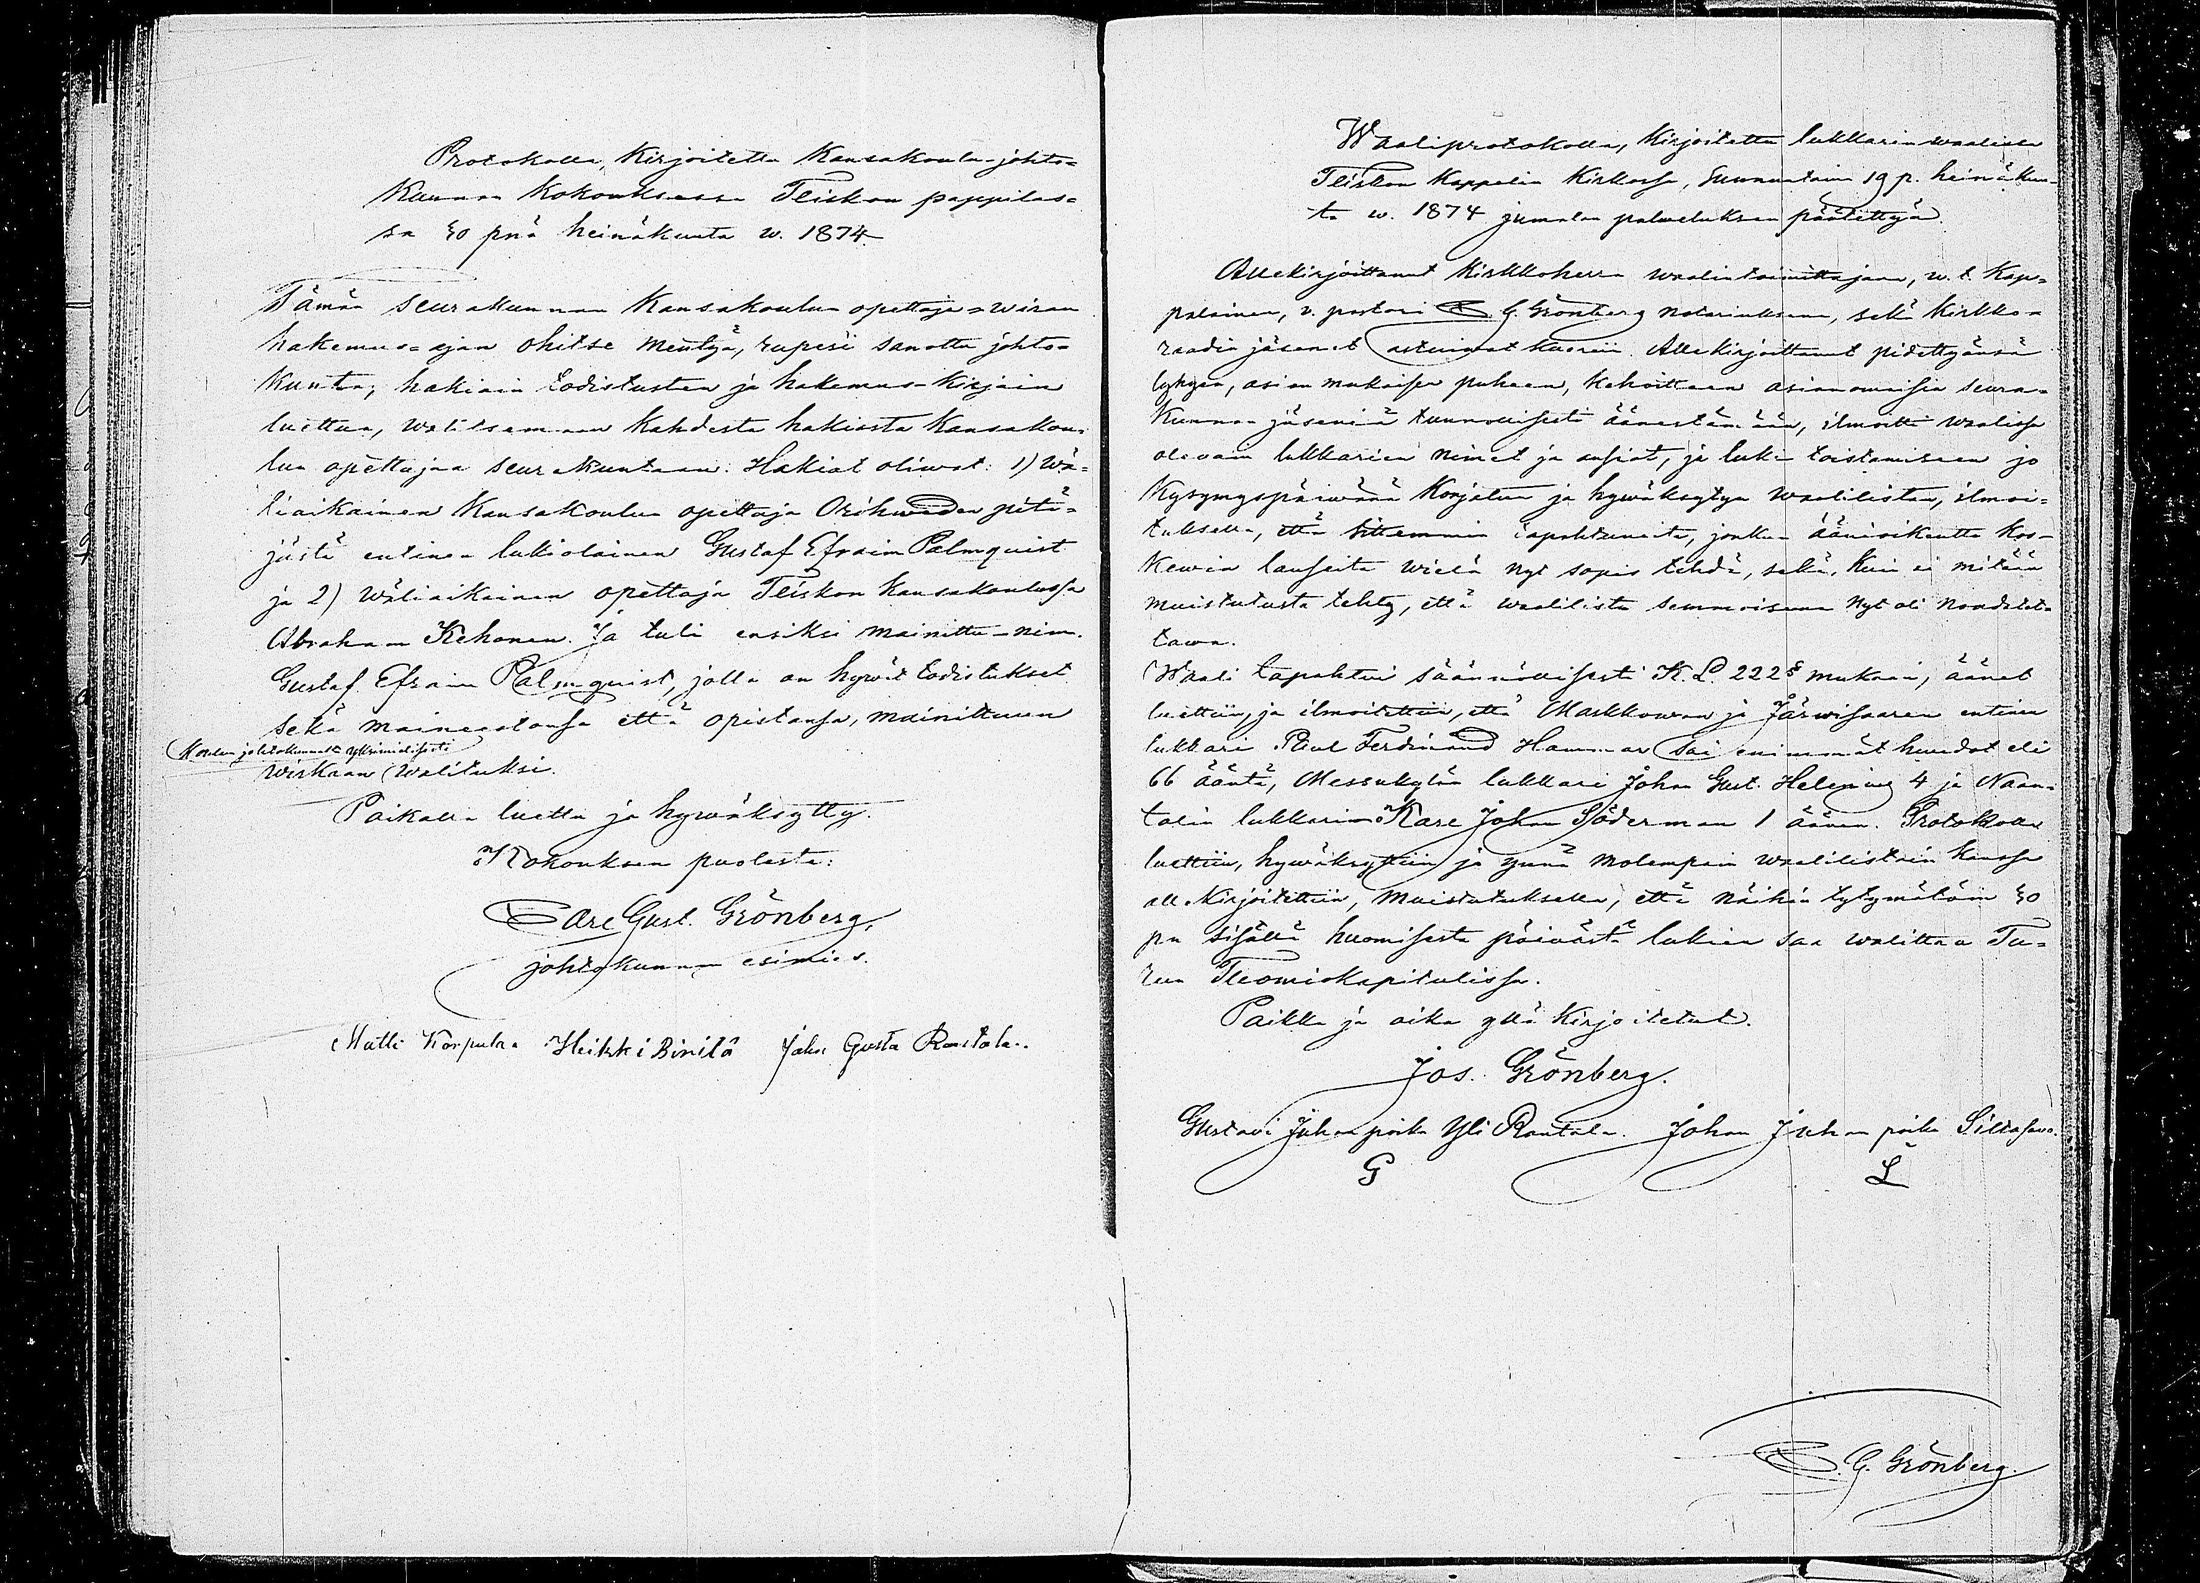 Protokolla, Kirjoitettu Kansakoulu-johto=
kunnan kokouksessa Teiskon pappilas=
sa 30 pnä heinäkuuta w. 1874
Tämän seurakunnan Kansakoulun opettaja=wiran
hakemus=ajan ohitse mentyä, rupesi sanottu johto=
kunta, hakiain todistusten ja hakemus-kirjain
luettua, walitsemaan kahdesta hakiasta kansakou=
lun opettajaa seurakuntaan. Hakiat oliwat: 1) Wä=
liaikainen kansakoulun opettaja Orihweden pitä=
jästä entinen lukiolainen Gustaf Efraim Palmquist
ja 2) wäliaikainen opettaja Teiskon kansakoulussa
Abraham Kehonen. Ja tuli ensiksi mainittu - nim.
Gustaf Efraim Palmquist, jolla on hywät todistukset
sekä maineestansa että opistansa, mainittuun
Koulun johtokunnalta yksimielisesti
wirkaan walituksi.
Paikalla luettu ja hywäksytty.
Kokouksen puolesta:
Carl Gust. Grönberg,
johtokunnan esimies.
Matti Korpula Heikki Binilä Johan Gusta Rautala.
Waaliprotokolla, Kirjoitettu lukkarin waalissa
Teiskon Kappelin Kirkossa, Sunnuntaina 19 p. heinäkuu-
ta w. 1874 jumalan palweluksen päätettyä.
Allekirjoittanut Kirkkoherra waalintoimittajana, w. t. Kap=
palainen, v. pastori C. G. Grönberg notariuksena, sekä kirkko=
raadin jäsenet astuiwat kuoriin. Allekirjoittanut pidettyänsä
lyhyen, asian mukaisen puheen, kehoittaen asianomaisia seura=
kunnan jäseniä tunnollisesti äänestämään, ilmoitti waalissa
olewain lukkarien nimet ja ansiot, ja luki toistamiseen jo
Kysymyspäiwänä korjatun ja hywäksytyn waalilistan, ilmoi=
tuksella, että sittemmin tapahtuneita, jonkun äänioikeutta kos-
kewia lauseita wielä nyt sopis tehdä, sekä, kuin ei mitään
muistutusta tehty, että waalilista semmoisena nyt oli noudatet-
tawa.
Waali tapahtui säännöllisesti K.L. 222 § mukaan, äänet
luettiin, ja ilmoitettiin, että Markkowan ja Järwisaaren entinen
lukkari Paul Ferdinand Hammar sai enimmät huudot eli
66 ääntä, Messukylän lukkari Johan Gust. Helenius 4 ja Naan=
talin lukkarin Karl Johan Söderman 1 äänen. Protokolla
luettiin, hywäksyttiin ja ynnä molempain waalilistain kanssa
allekirjoitettiin, muistutuksella, että näihin tytymätöin 30
pn sisällä huomisesta päiwästä lukien saa walittaa Tu=
run Tuomiokapitulissa.
Paikka ja aika yllä kirjoitetut.
Jos. Grönberg.
Gustavi Juhanpoika Yli Rautala. Johan Juhanpoika
G L
C. G. Grönberg.